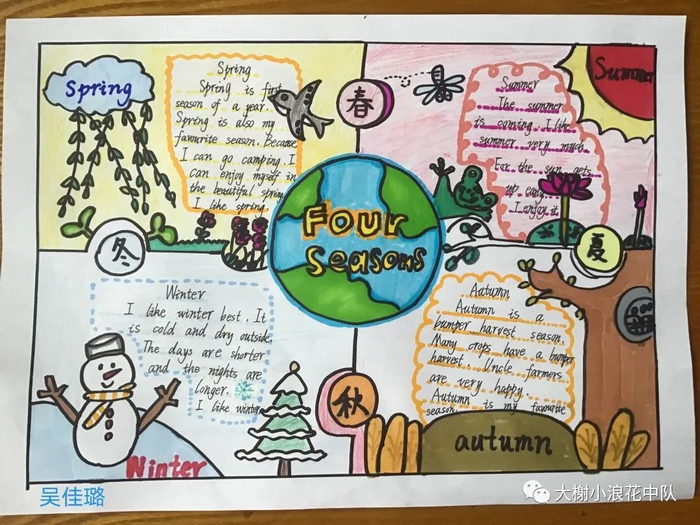 Spring
Spring
Spring is first
season of a year.
Spring is also my
favourite season. Because
I can go camping. I
can enjoy myself in
the beautiful spring
I like spring.
春
Summer
Summer
The summer
is coming. I like
summer very much.
For the sun gets
up early
I enjoy it
Four
Seasons
冬
夏
秋
Winter
I like winter best. It
is cold and dry outside.
The days are shorter
and the nights are
longer.
I like winter
Winter
Autumn
Autumn is a
bumper harvest season.
Many crops have a bumper
harvest. Uncle farmers
are very happy.
Autumn is my favorite
season
autumn
吴佳璐
大榭小浪花中队